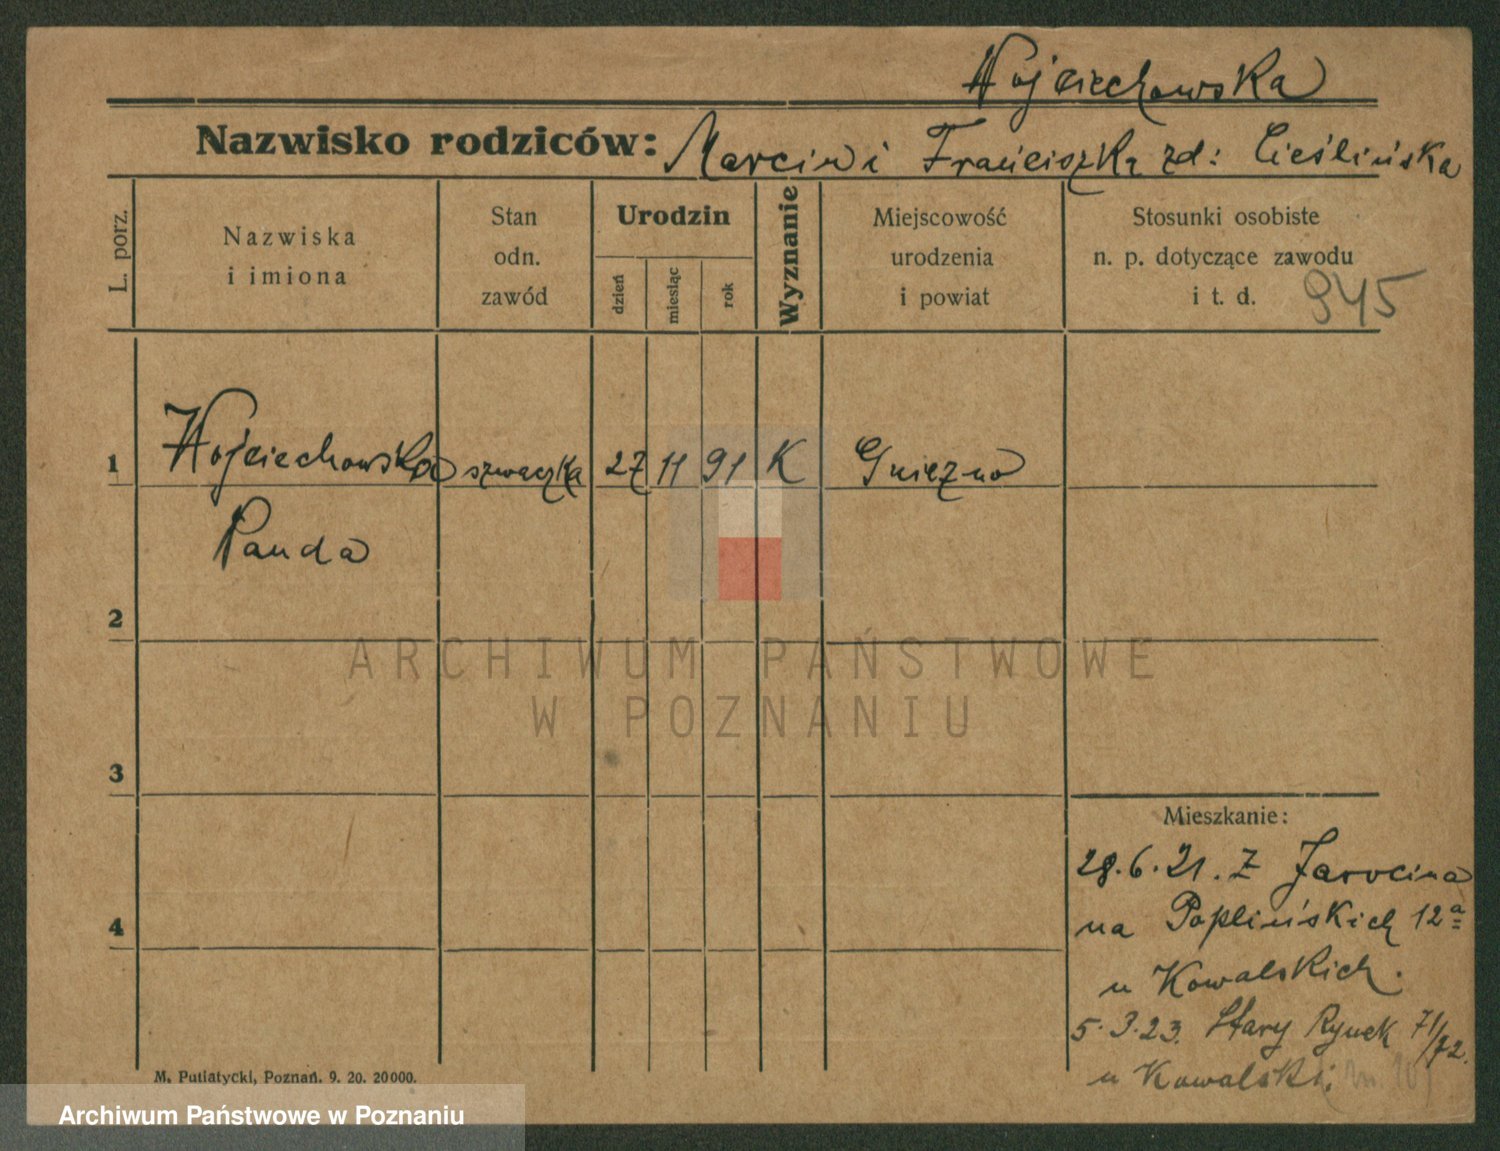 Wojciechowska
Nazwisko rodziców: Marcin i Franciszka zd: Cieślińska
L. porz.
Nazwiska
i imiona
Stan
odn.
zawód
Urodzin
dzień
miesiąc
rok
Wyznanie
Miejscowość
urodzenia
i powiat
Stosunki osobiste
n. p. dotyczące zawodu
i t. d.
945
1 Wojciechowska szwaczka 27 11 91 K Gniezno
Wanda
2
ARCHIWUM PAŃSTWOWE
W POZNANIU
3
Mieszkanie:
28.6.21. Z Jarocina
na Poplińskich 12a
4
u Kowalskich.
5.3.23. Stary Rynek 71/72.
u Kowalski
M. Putiatycki, Poznań. 9. 20. 20000.
Archiwum Państwowe w Poznaniu